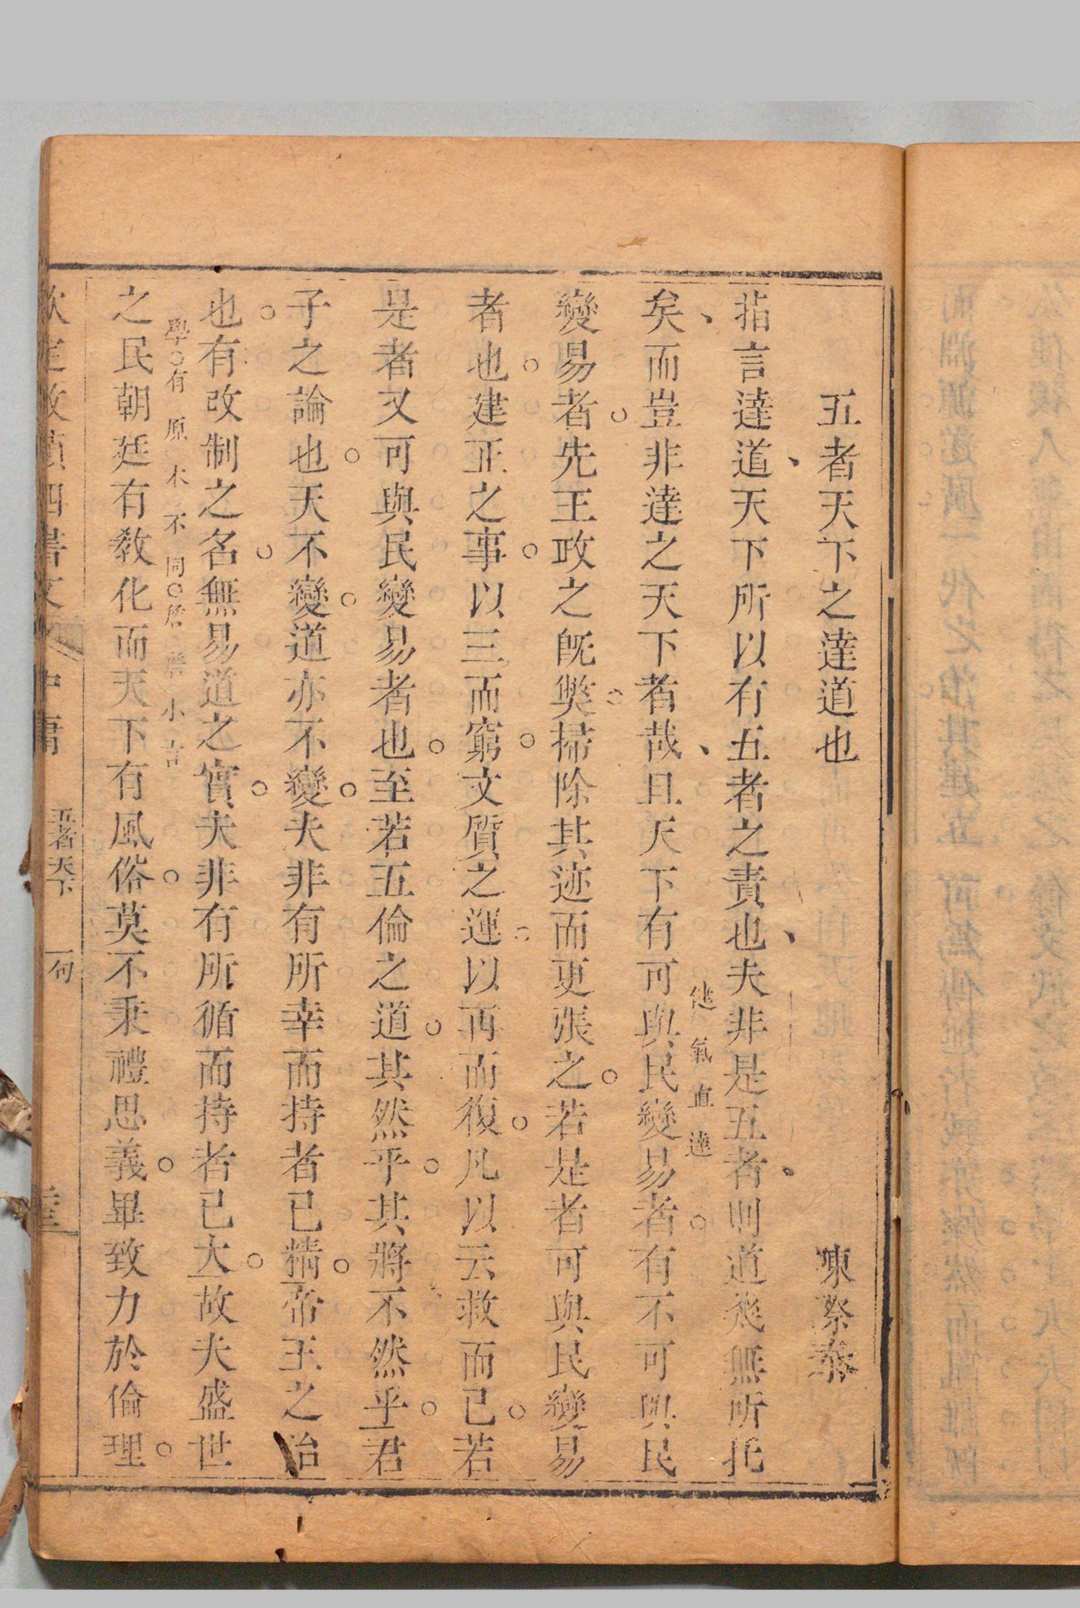 五者天下之達道也
陳際泰
指言達道天下所以有五者之責也夫非是五者則道幾無所托
矣而豈非達之天下者哉且天下有可與民變易者有不可與民
健氣直達
變易者先王政之既獘掃除其迹而更張之若是者可與民變易
者也建正之事以三而窮文質之運以再而復凡以云救而已若
是者又可與民變易者也至若五倫之道其然乎其將不然乎君
子之論也天不變道亦不變夫非有所幸而持者已精帝王之治
也有改制之名無易道之實夫非有所循而持者已大故夫盛世
學有原本不同 小言
之民朝廷有教化而天下有風俗莫不秉禮思義畢致力於倫理
欽定啟禎四書文 中庸 五者天下 一句